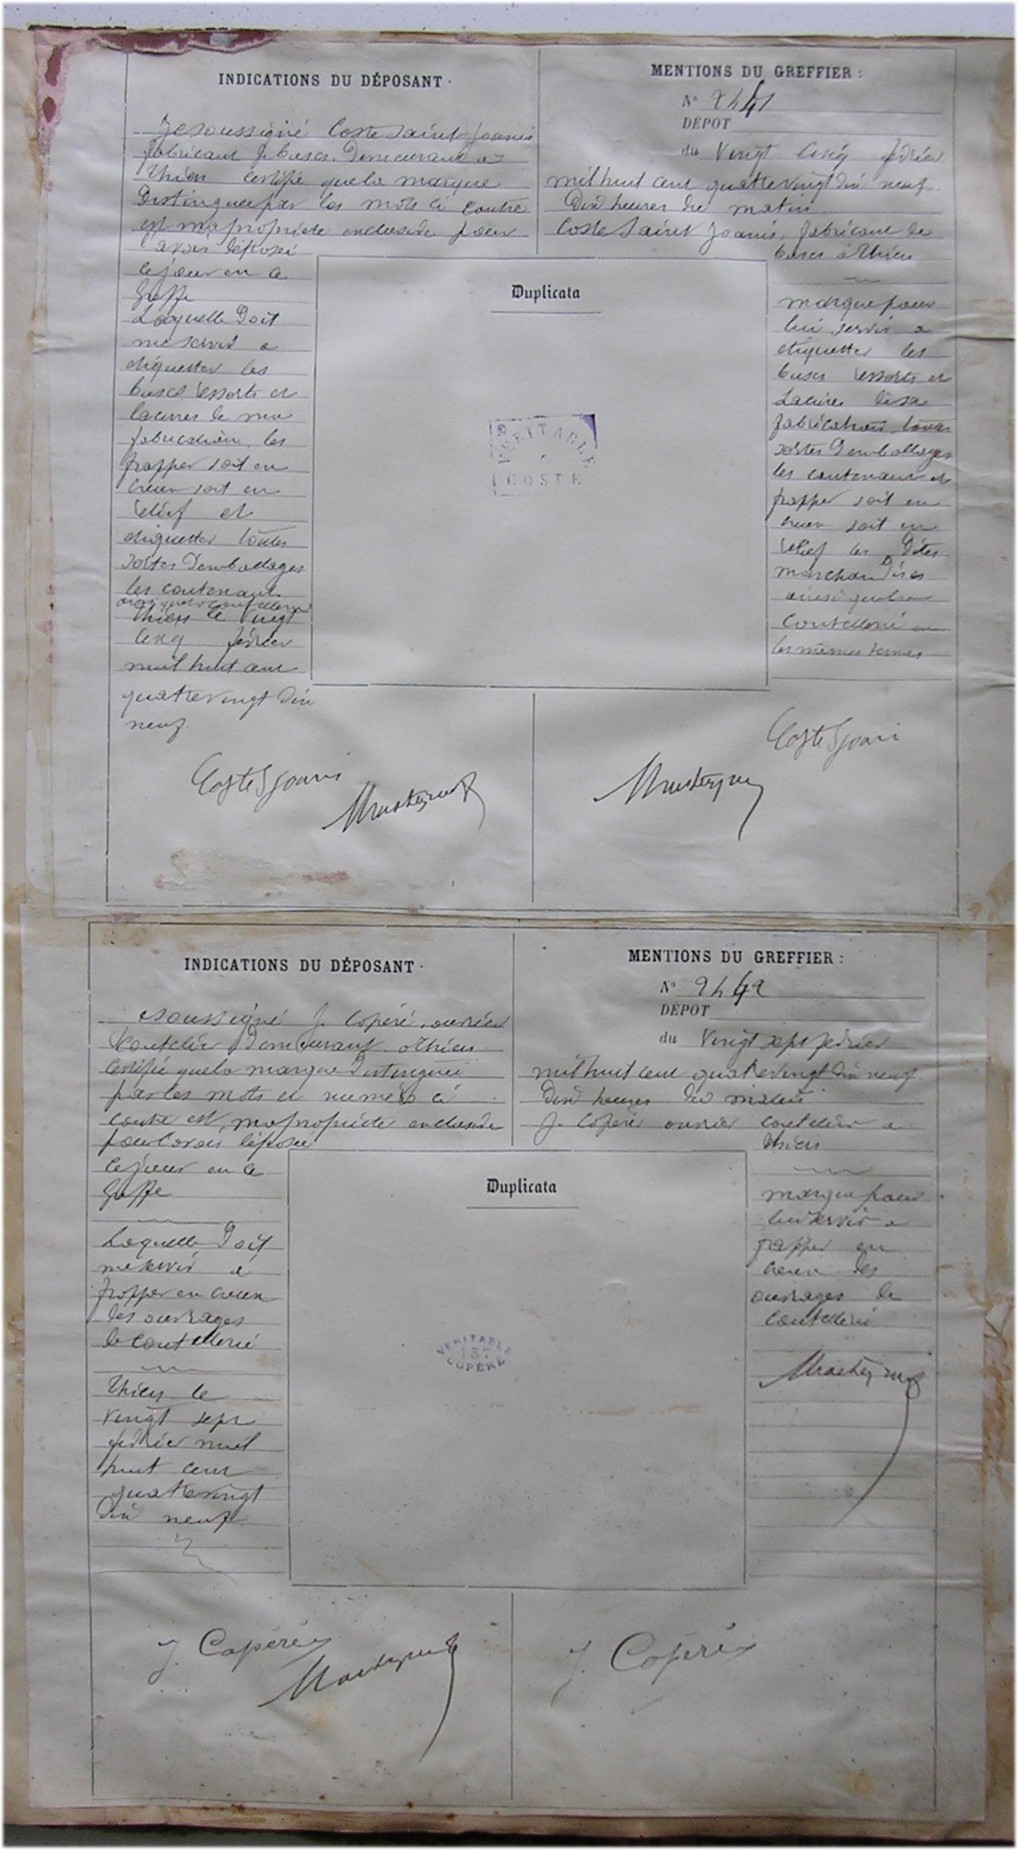 INDICATIONS DU DÉPOSANT.
Je soussigné Coste Saint Joanis
fabricant de buscs Demeurant à
Thiers certifie que la marque
Distinguée par les mots ci contre
est ma propriete exclusive pour
avoir déposée
ce jour en ce
Greffe
Laquelle Doit
me servir a
étiquetter les
buscs ressorts et
lacures de ma
fabrication, les
frapper soit en
creux soit en
relief et
étiquetter toutes
sortes D'emballages
les contenant
ainsi que la coutellerie
Thiers le vingt
cinq février
mil huit cent
quatre vingt dix
neuf.
MENTIONS DU GREFFIER :
N° 9441
DÉPÔT
du Vingt cinq février
mil huit cent quatre vingt dix neuf.
Dix heures du matin
Coste Saint Joanis, fabricant de
buscs à Thiers
marque pour
lui servir a
étiquetter les
buscs ressorts et
Lacures de sa
fabrication toutes
sortes D'emballages
les contenant et
frapper soit en
creux soit en
relief les Dites
marchandises
ainsi que la
coutellerie en
les mêmes termes
Duplicata
VERITABLE
COSTE
Coste S Joanis
Coste S Joanis
INDICATIONS DU DÉPOSANT.
soussigné J. Copéré, ouvrier
Coutelier Demeurant à Thiers
certifie que la marque Distinguée
par les mots et numéro ci
contre est ma propriete exclusive
pour l'avoir déposée
ce jour en ce
Greffe
Laquelle Doit
me servir à
frapper en creux
les ouvrages
de coutellerie
Thiers le
vingt sept
février mil
huit cent
quatre vingt
Dix neuf.
MENTIONS DU GREFFIER :
N° 9442
DÉPÔT
du Vingt sept février
mil huit cent quatre vingt dix neuf
Dix heures du matin
J. Copéré ouvrier coutelier a
Thiers
marque pour
lui servir a
frapper en
creux les
ouvrages de
coutellerie
Duplicata
VERITABLE
137
COPÉRÉ
J. Copéré
J. Copéré